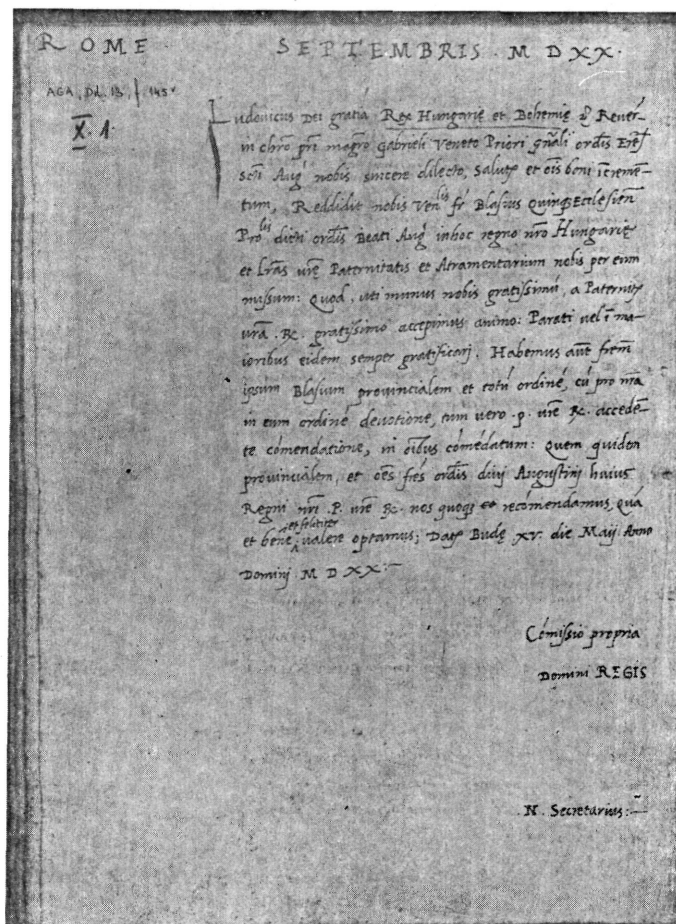 ROME SEPTEMBRIS · M D XX ·
AGA, Dd. 13, f. 145v
X. 1.
Ludovicus Dei gratiā Rex Hungarię et Bohemię &c Reuer̄
in chr̄o pr̄i magr̄o Gabrieli Veneto Priori gñali ordīs Erēt
scti Aug' nobis sincere dilecto, Salutē et oīs boni īcremē-
tum, Reddidit nobis Venlis fr̄ Blasius Quinq3 Ecclesieñ
Prolis dicti ordīs Beati Aug' in hoc regno nr̄o Hungarię
et lr̄as vrę Paternitatis et Atramentarium nobis per eum
missum: Quod, uti munus nobis gratissimū, a Paternitē
vrā · &c · gratissimo accepimus animo: Parati vel ī ma-
ioribus eidem semper gratificarj. Habemus aūt frēm
ipsum Blasium prouincialem et totū ordinē, cū pro nr̄a
in eum ordinē deuotione, tum vero · p · vrē &c · accedē-
te cōmendatione, in oībus cōmēdatum: Quem quidem
prouincialem, et oēs frēs ordīs diuj Augustini huius
Regni nr̄i · P · vrē &c · nos quoq3 et recōmendamus, quā
et bene et feliciter valere optamus; Datę Budę XV. die Maij Anno
Dominj M D XX:—
Cōmissio propria
Domini REGIS
N. Secretarius:—